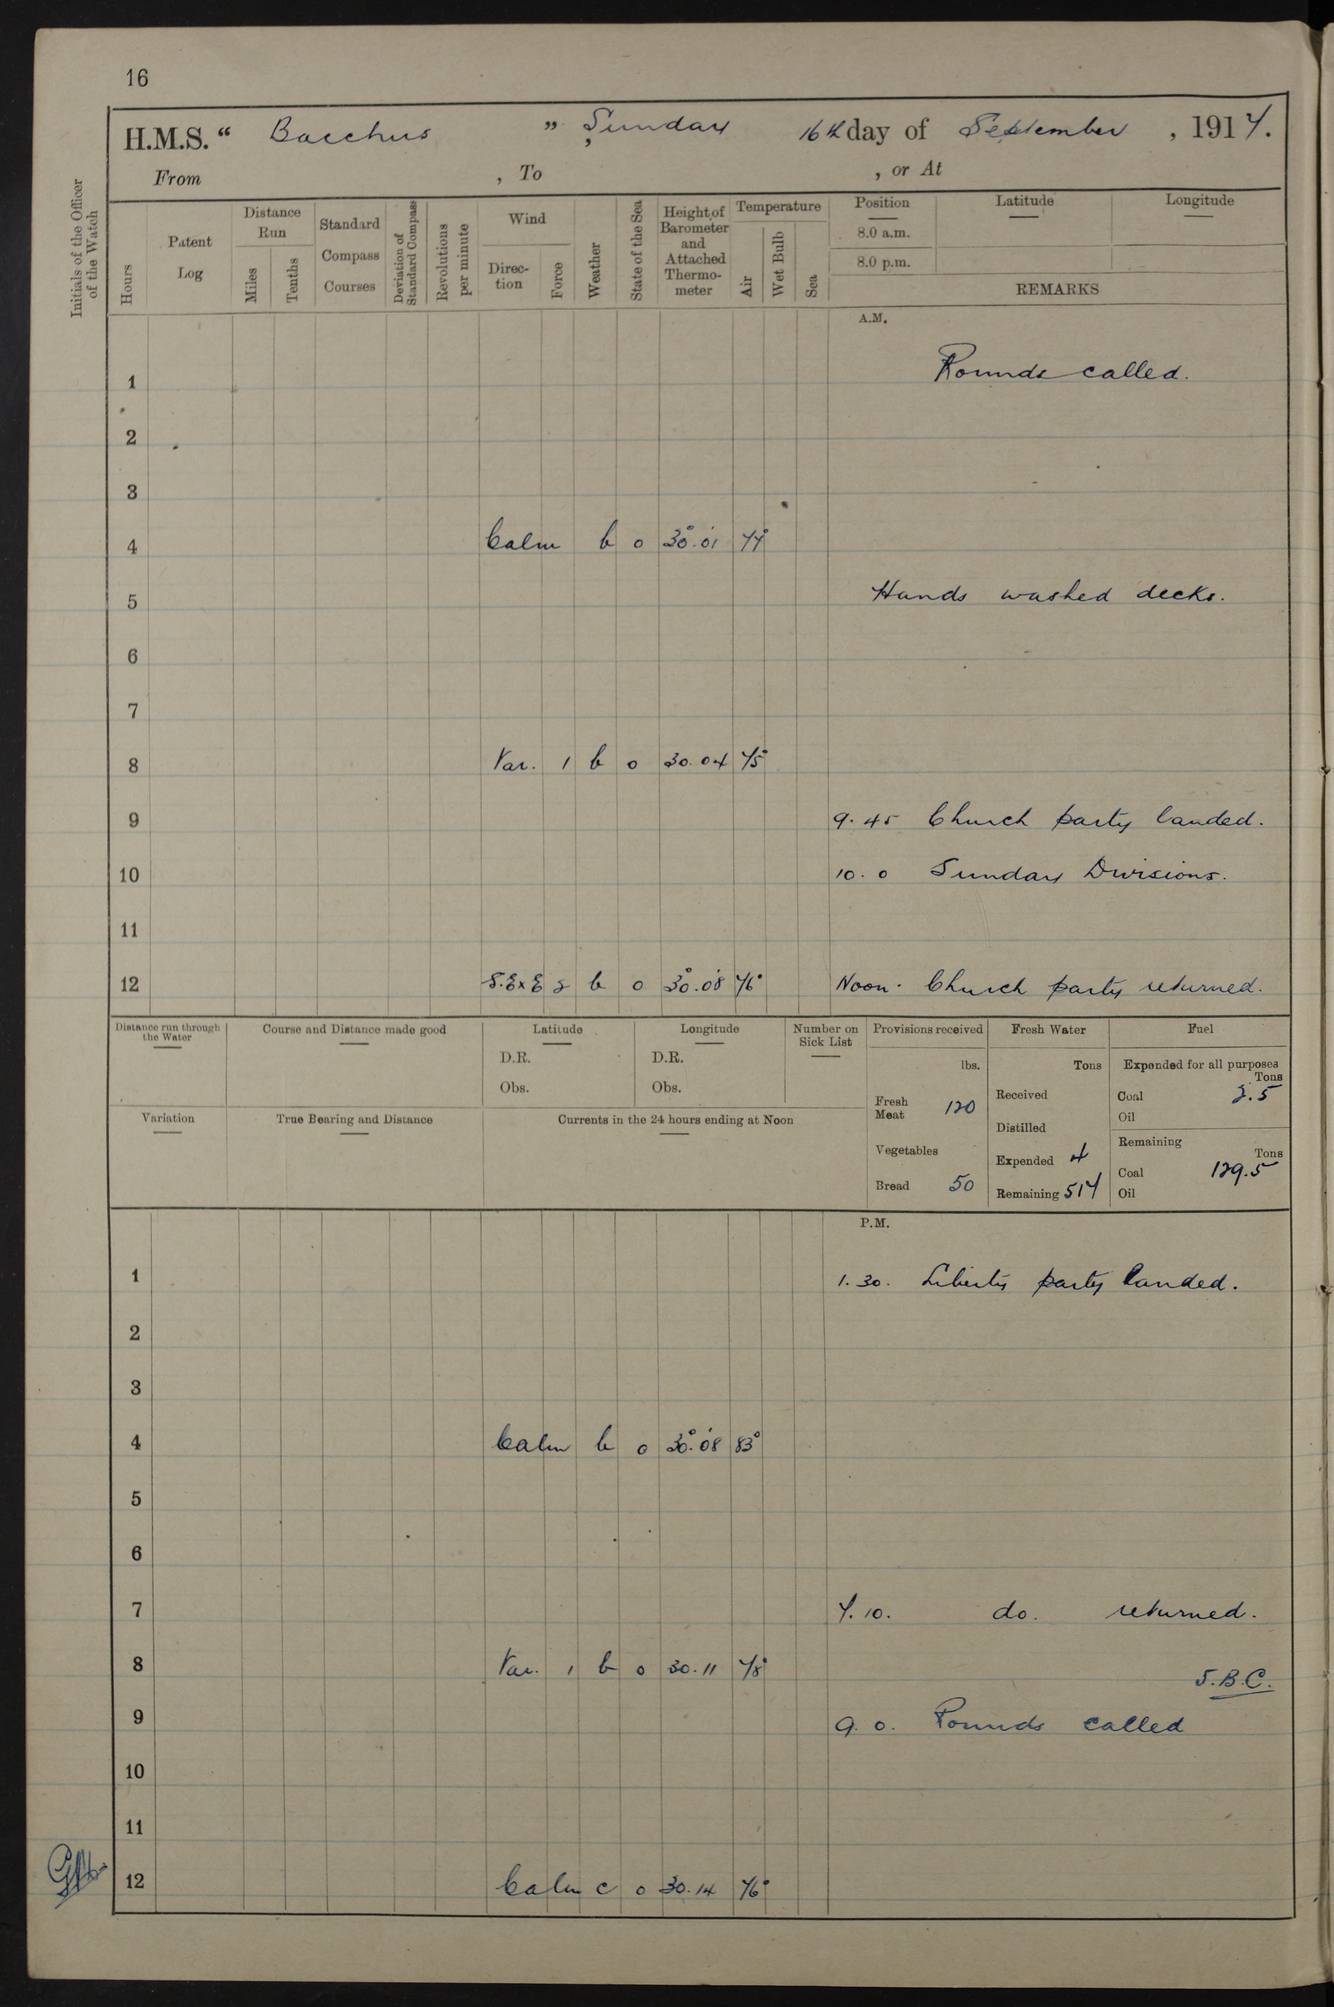 16
H.M.S. “ Bacchus ” , Sunday 16th day of September , 1917.
From , To , or At
Initials of the Officer of the Watch
Hours
Patent Log
Distance Run
Miles
Tenths
Standard Compass Courses
Deviation of Standard Compass
Revolutions per minute
Wind
Direc-tion
Force
Weather
State of the Sea
Height of Barometer and Attached Thermo-meter
Temperature
Air
Wet Bulb
Sea
Position
8.0 a.m.
8.0 p.m.
Latitude
Longitude
REMARKS
A.M.
1 Rounds called.
2
3
4 Calm b o 30.01 77°
5 Hands washed decks.
6
7
8 Var. 1 b o 30.04 75°
9 9.45 Church party landed.
10 10.0 Sunday Divisions.
11
12 S.E x E 2 b o 30.08 76° Noon. Church party returned.
Distance run through the Water
Course and Distance made good
Latitude
D.R.
Obs.
Longitude
D.R.
Obs.
Number on Sick List
Provisions received
lbs.
Fresh Meat 120
Vegetables
Bread 50
Fresh Water
Tons
Received
Distilled
Expended 4
Remaining 517
Fuel
Expended for all purposes
Tons
Coal 2.5
Oil
Remaining
Tons
Coal 129.5
Oil
Variation
True Bearing and Distance
Currents in the 24 hours ending at Noon
P.M.
1 1.30. Liberty party landed.
2
3
4 Calm b o 30.08 83°
5
6
7 7.10. do. returned.
8 Var. 1 b o 30.11 78°
S.B.C.
9 9.0. Rounds called
10
11
12 Calm c o 30.14 76°